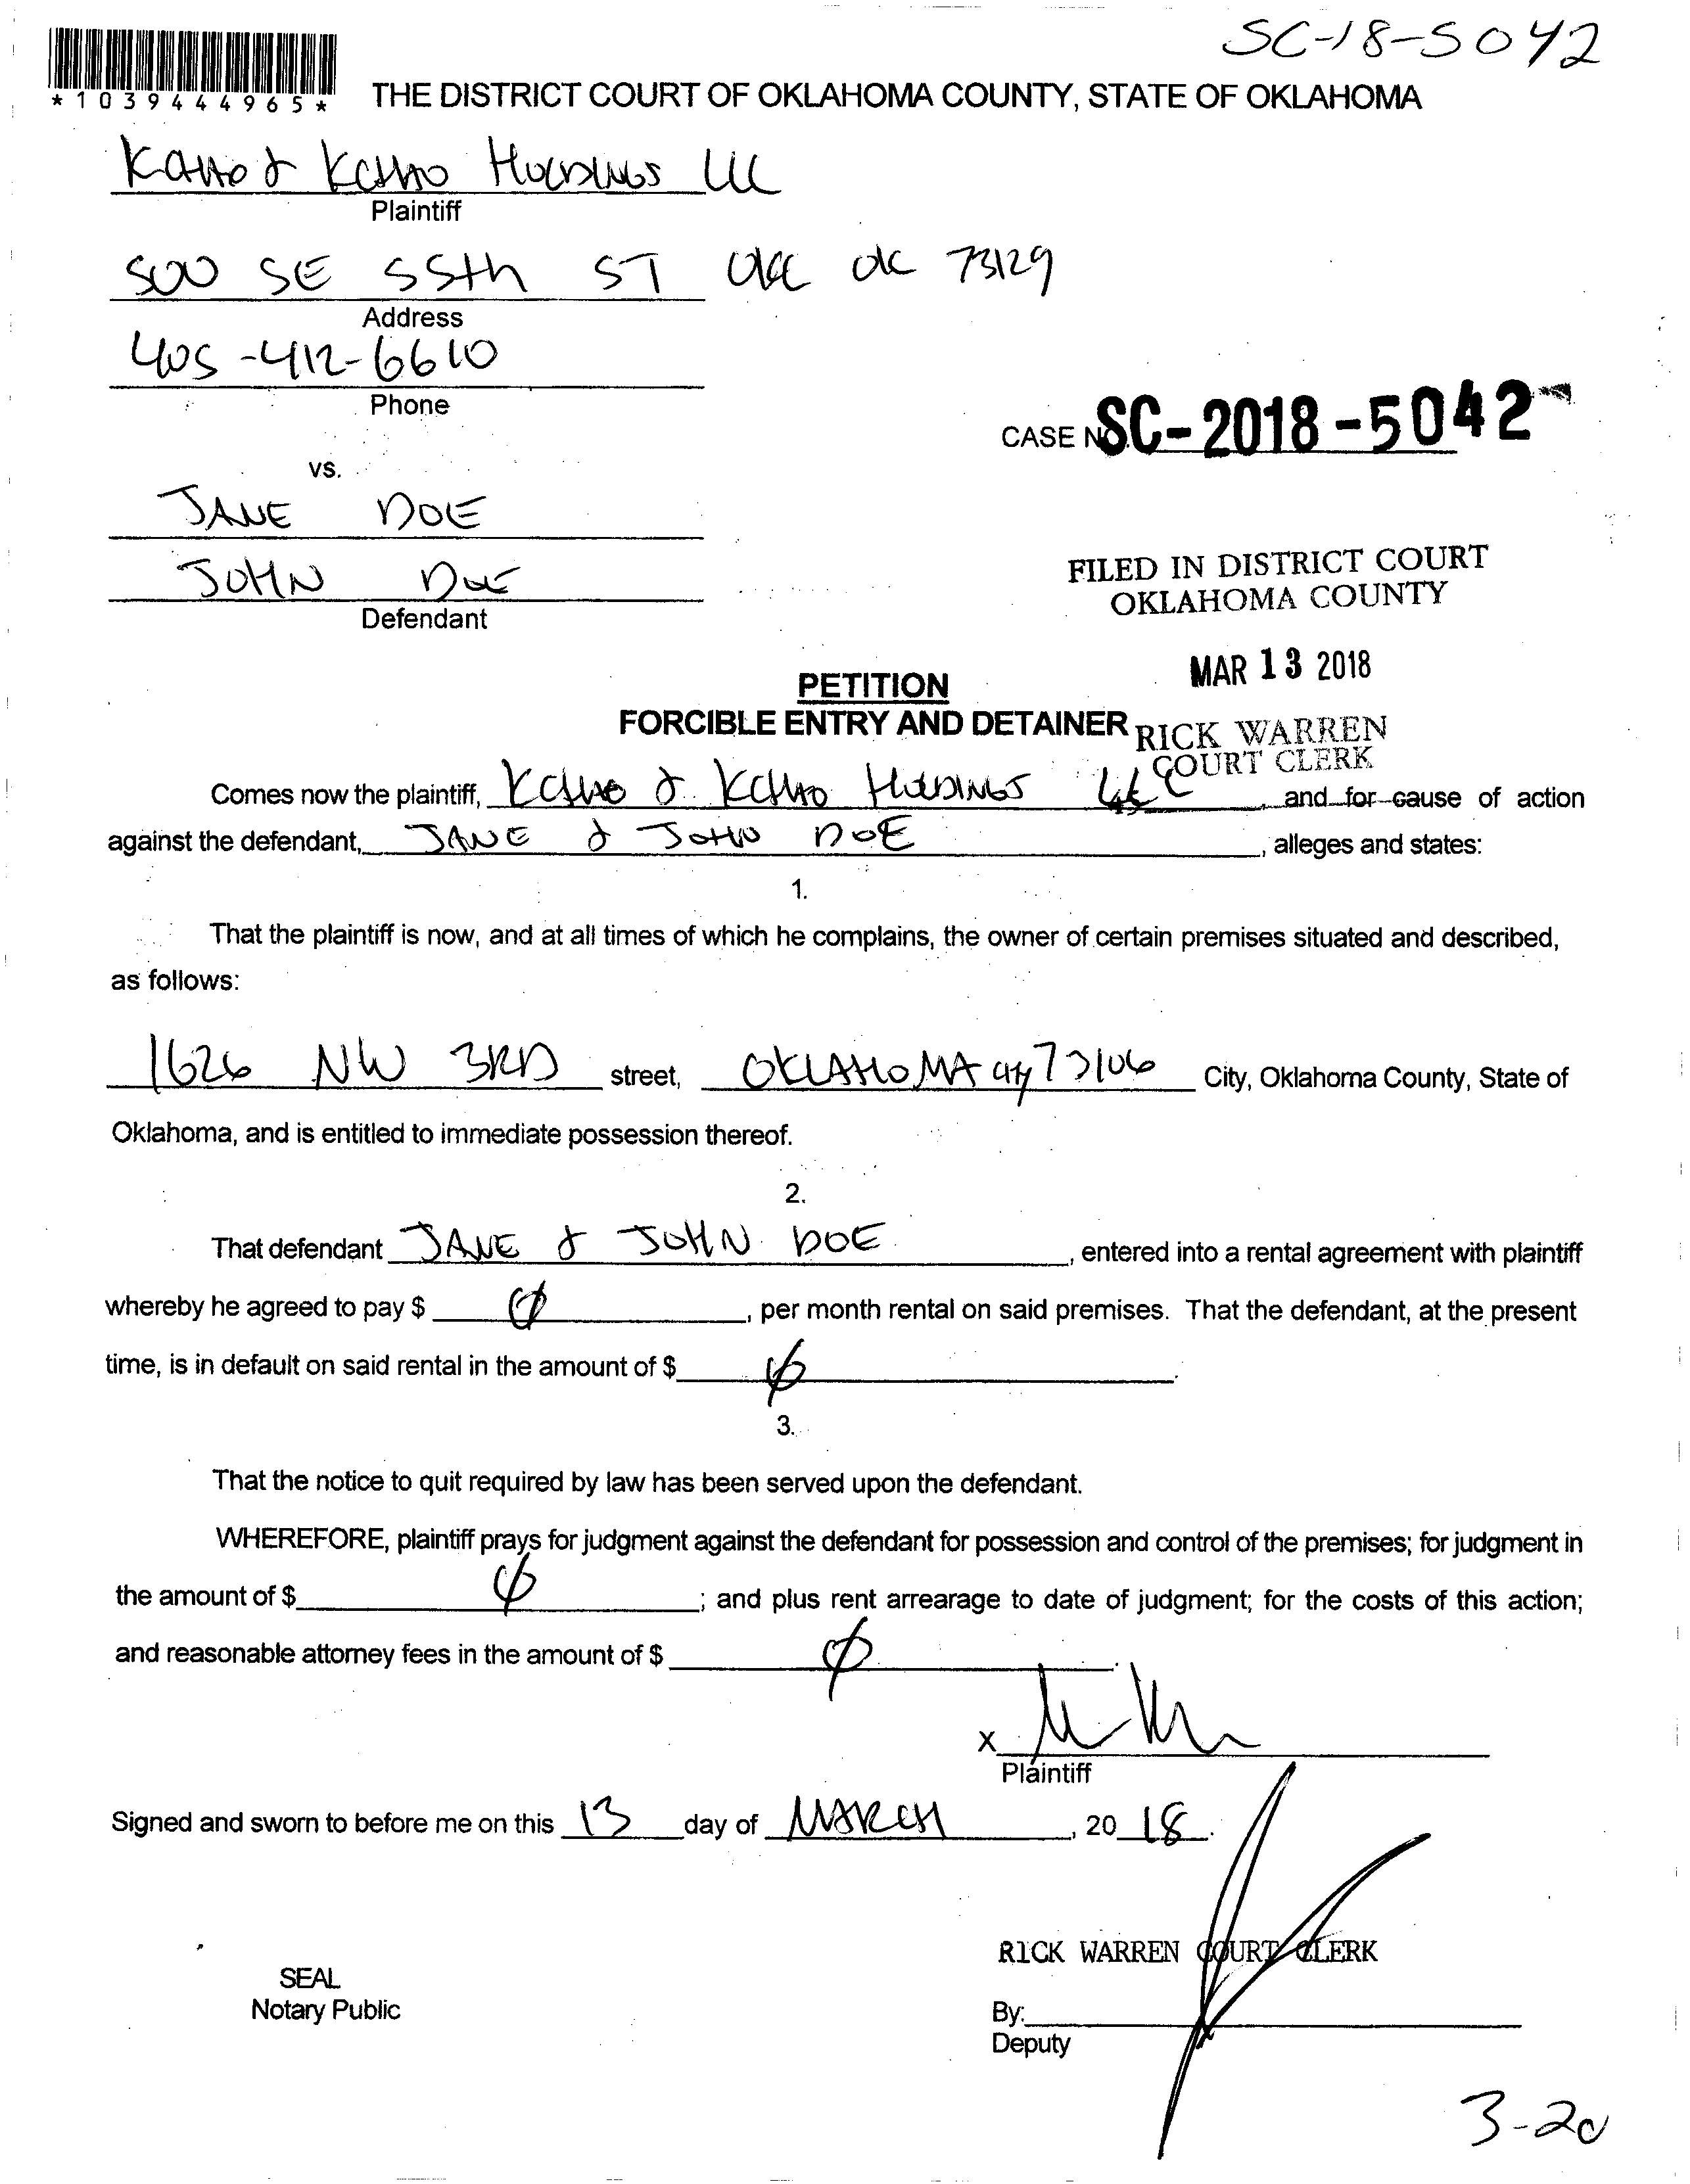 SC-18-5042
*1039444965*
THE DISTRICT COURT OF OKLAHOMA COUNTY, STATE OF OKLAHOMA
& Holdings LLC
Plaintiff
500 SE 55th ST OKC OK 73129
Address
405-412-6610
Phone
CASE NO. SC-2018-5042
vs.
JANE DOE
JOHN DOE
Defendant
FILED IN DISTRICT COURT
OKLAHOMA COUNTY
MAR 13 2018
PETITION
FORCIBLE ENTRY AND DETAINER
RICK WARREN
COURT CLERK
Comes now the plaintiff, & Holdings LLC, and for cause of action
against the defendant, JANE & JOHN DOE, alleges and states:
1.
That the plaintiff is now, and at all times of which he complains, the owner of certain premises situated and described,
as follows:
1626 NW 3RD street, OKLAHOMA City 73106 City, Oklahoma County, State of
Oklahoma, and is entitled to immediate possession thereof.
2.
That defendant JANE & JOHN DOE, entered into a rental agreement with plaintiff
whereby he agreed to pay $ Ø, per month rental on said premises. That the defendant, at the present
time, is in default on said rental in the amount of $ Ø.
3.
That the notice to quit required by law has been served upon the defendant.
WHEREFORE, plaintiff prays for judgment against the defendant for possession and control of the premises; for judgment in
the amount of $ Ø; and plus rent arrearage to date of judgment; for the costs of this action;
and reasonable attorney fees in the amount of $ Ø.
X
Plaintiff
Signed and sworn to before me on this 13 day of MARCH, 20 18.
RICK WARREN COURT CLERK
SEAL
Notary Public
By:
Deputy
3-20